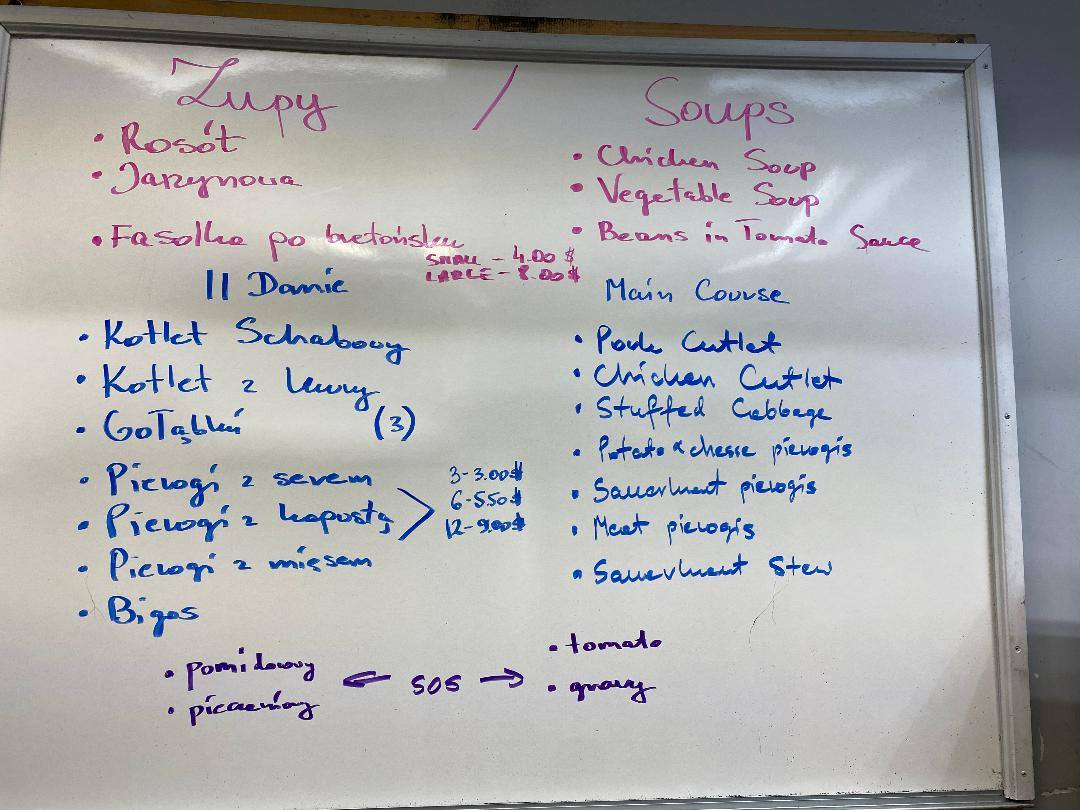 Zupy / Soups
• Rosół
• Jarzynowa
• Fasolka po bretońsku
• Chicken Soup
• Vegetable Soup
• Beans in Tomato Sauce
SMALL - 4.00 $
LARGE - 8.00 $
II Danie
• Kotlet Schabowy
• Kotlet z kury
• Gołąbki (3)
• Pierogi z serem
• Pierogi z kapustą
• Pierogi z mięsem
• Bigos
3-3.00$
6-5.50$
12-9.00$
Main Course
• Pork Cutlet
• Chicken Cutlet
• Stuffed Cabbage
• Potato & chesse pierogis
• Sauerkraut pierogis
• Meat pierogis
• Sauerkraut Stew
• pomidorowy
• pieczeniowy
← SOS →
• tomato
• gravy